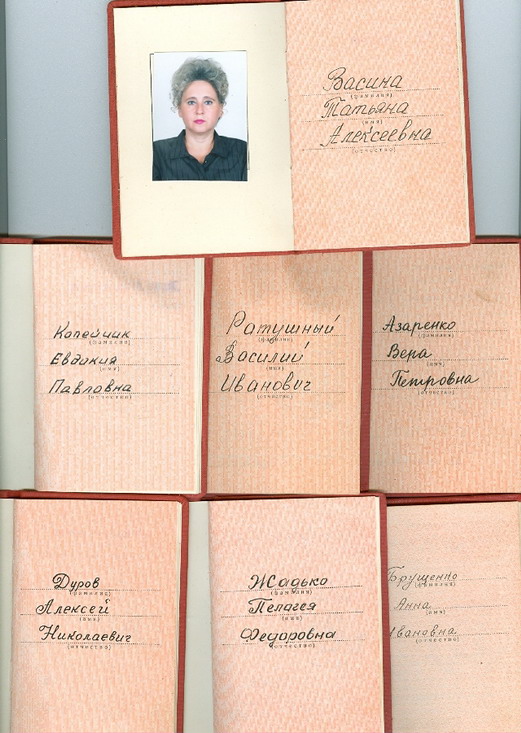 Васина
(фамилия)
Татьяна
(имя)
Алексеевна
(отчество)
Копейчик
(фамилия)
Евдокия
(имя)
Павловна
(отчество)
Ратушный
(фамилия)
Василий
(имя)
Иванович
(отчество)
Азаренко
(фамилия)
Вера
(имя)
Петровна
(отчество)
Дуров
(фамилия)
Алексей
(имя)
Николаевич
(отчество)
Жадько
(фамилия)
Пелагея
(имя)
Федоровна
(отчество)
Брущенко
(фамилия)
Анна
(имя)
Ивановна
(отчество)